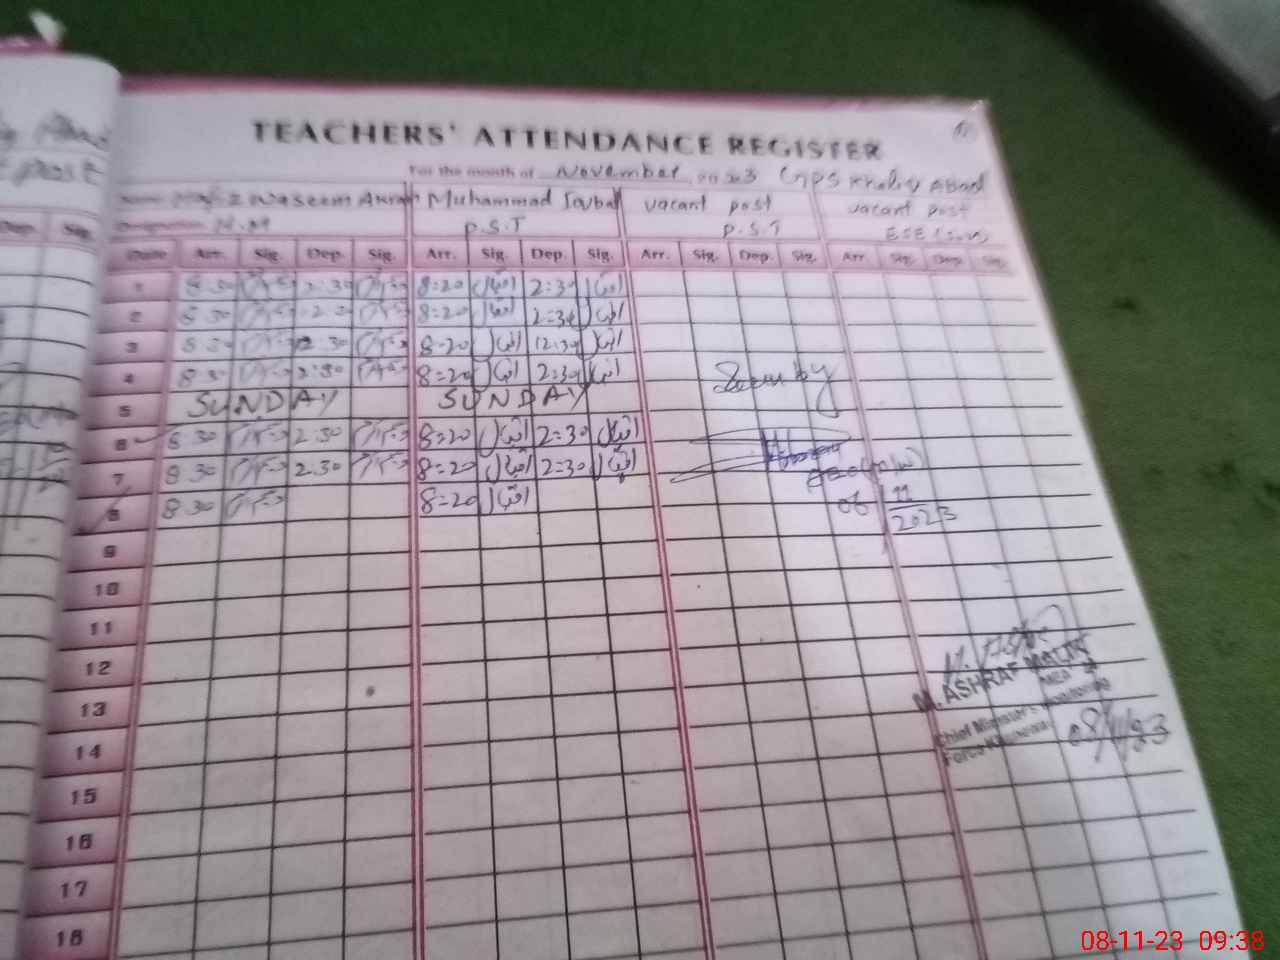 TEACHERS' ATTENDANCE REGISTER
For the month of November 2023 GPS Khaliq Abad
Name Hafiz Waseem Akram Muhammad Iqbal vacant post vacant post
Designation H.M P.S.T P.S.T ESE
Date Arr. Sig. Dep. Sig. Arr. Sig. Dep. Sig. Arr. Sig. Dep. Sig. Arr. Sig. Dep. Sig.
1 8.30 2.30 8=20 اقبال 2=30 اقبال
2 8.30 8=20 اقبال 2=30 اقبال
3 8.30 2.30 8=20 اقبال 12:30 اقبال
4 8.30 2.30 8=20 اقبال 2=30 اقبال
5 SUNDAY SUNDAY
Seen by
6 8.30 2.30 8=20 اقبال 2=30 اقبال
7 8.30 2.30 8=20 اقبال 2=30 اقبال
8 8.30 8=20 اقبال
06 11
2023
9
10
11
12
M. ASHRAF MALIK
13
Chief Minister's Monitoring
Force
08/11/23
14
15
16
17
18
Dep. Sig.
08-11-23 09:38